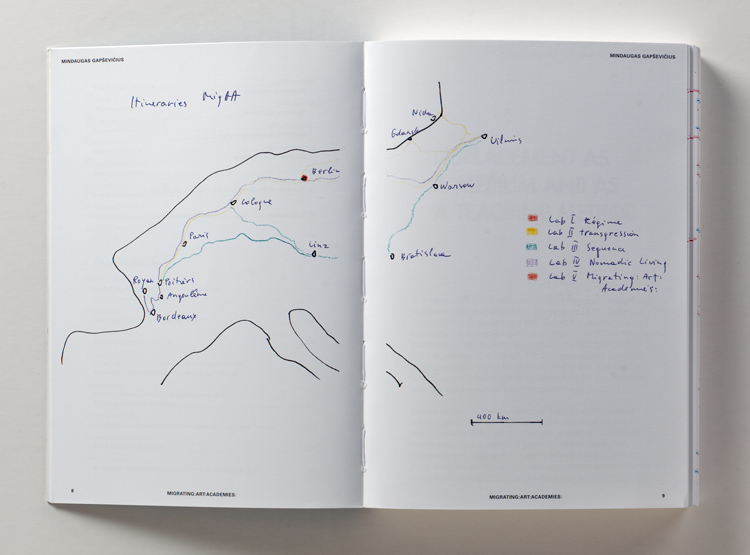 MINDAUGAS GAPŠEVIČIUS
Itineraries MigAA
Berlin
Cologne
Paris
Linz
Royan
Poitiers
Angoulême
Bordeaux
8
MIGRATING:ART:ACADEMIES:
MINDAUGAS GAPŠEVIČIUS
Nida
Gdansk
Vilnius
Warsaw
Bratislava
Lab I Régime
Lab II transgression
Lab III Sequenca
Lab IV Nomadic Living
Lab V Migrating: Art:
Academies:
400 km
MIGRATING:ART:ACADEMIES:
9